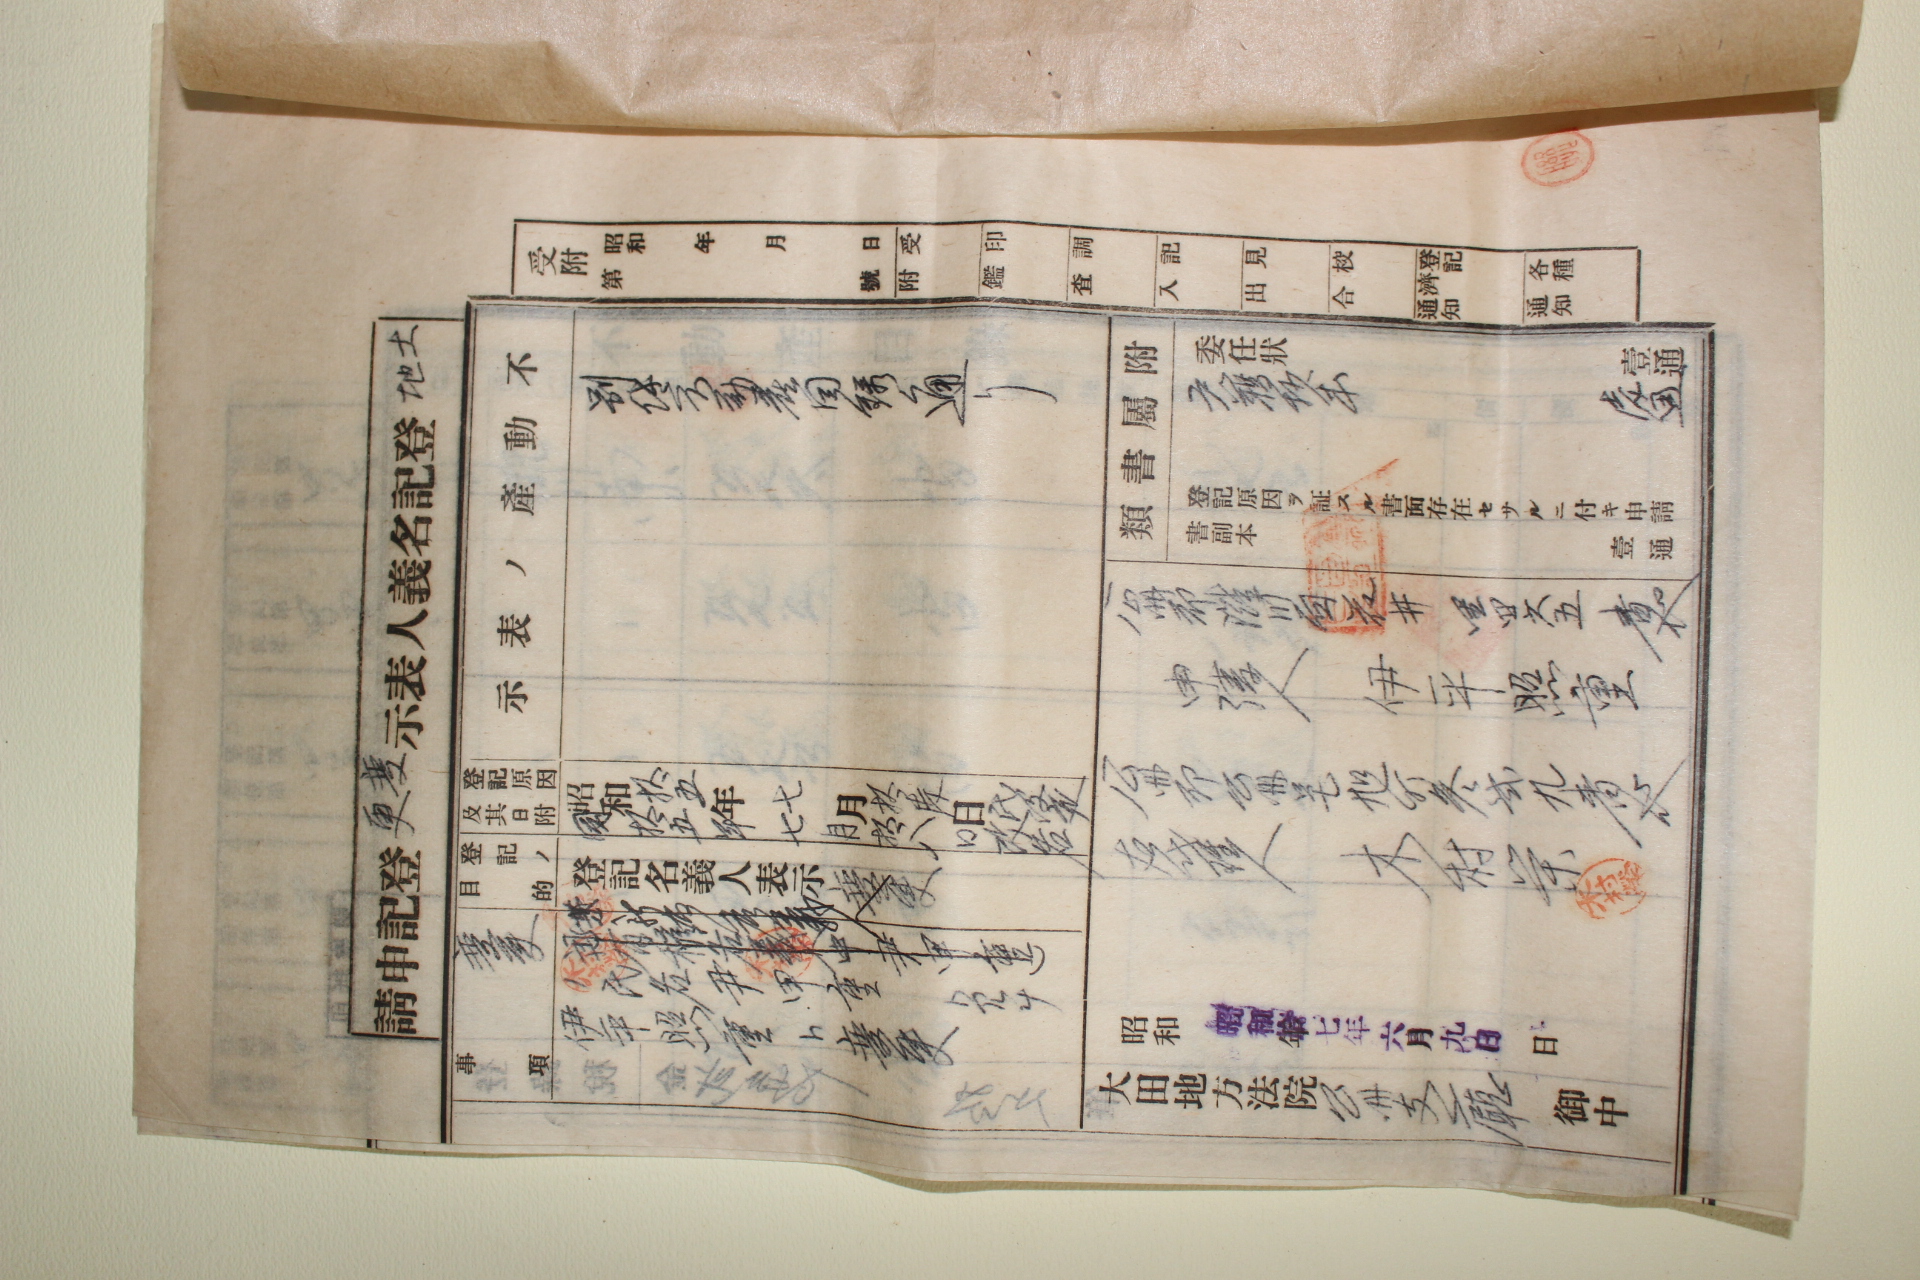 土地登記名義人表示變更登記申請
受附
昭和 年 月 日
第 號
受附
印鑑
調査
記入
見出
校合
登記濟通知
各種通知
不動產ノ表示
別紙不動產目錄ノ通リ
登記原因及其日附
昭和拾五年七月拾
同拾五年七月拾八日改名
登記ノ目的
登記名義人表示變更
變更
事項
氏名尹甲重
伊平照重ト變更
附屬書類
委任狀 壹通
登記原因ヲ証スル書面存在セサルニ付キ申請書副本 壹通
公州郡灘川面花井里四六五番地
申請人 伊平照重
公州郡公州邑旭町參貳九番地
右代理人 木村榮
昭和 年 日
昭和拾七年六月九日
大田地方法院公州支廳 御中